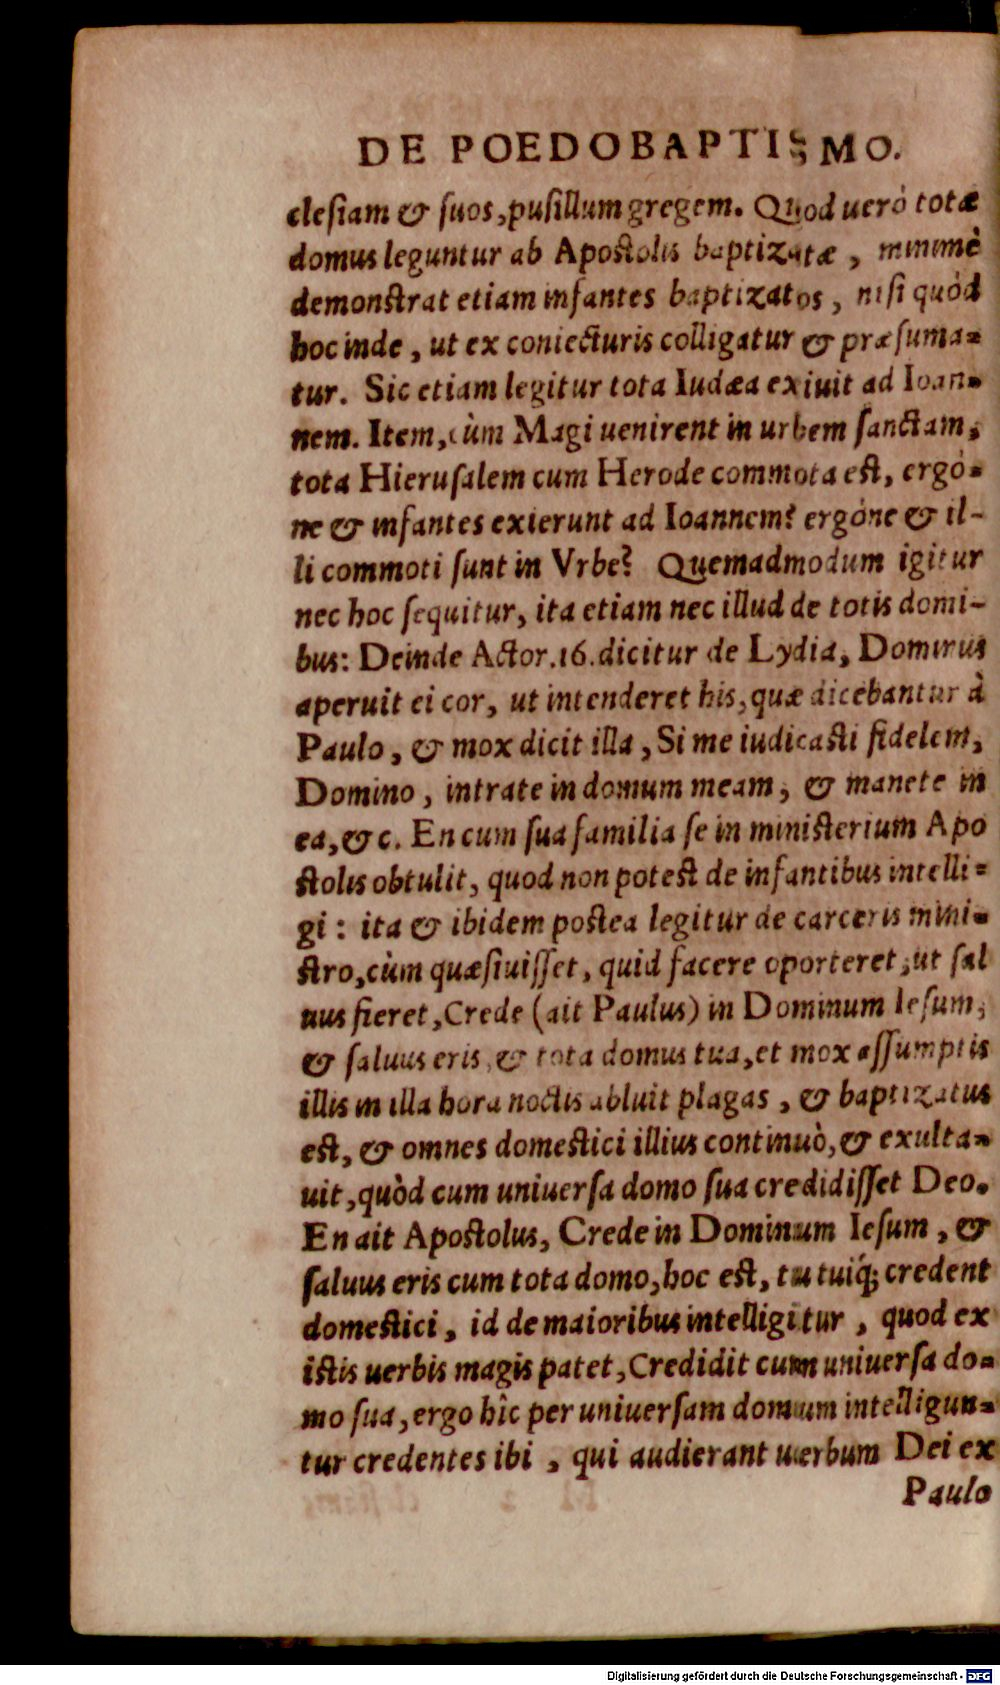 DE POEDOBAPTISMO.
clesiam & suos, pusillum gregem. Quod uerò totæ
domus leguntur ab Apostolis baptizatæ, minimè
demonstrat etiam infantes baptizatos, nisi quòd
hoc inde, ut ex coniecturis colligatur & præsuma=
tur. Sic etiam legitur tota Iudæa exiuit ad Ioan=
nem. Item, cùm Magi uenirent in urbem sanctam,
tota Hierusalem cum Herode commota est, ergó=
ne & infantes exierunt ad Ioannem? ergóne & il-
li commoti sunt in Vrbe? Quemadmodum igitur
nec hoc sequitur, ita etiam nec illud de totis domi-
bus: Deinde Actor.16. dicitur de Lydia, Dominus
aperuit ei cor, ut intenderet his, quæ dicebantur à
Paulo, & mox dicit illa, Si me iudicasti fidelem,
Domino, intrate in domum meam, & manete in
ea, &c. En cum sua familia se in ministerium Apo
stolis obtulit, quod non potest de infantibus intelli=
gi: ita & ibidem postea legitur de carceris mini=
stro, cùm quæsiuisset, quid facere oporteret, ut sal
uus fieret, Crede (ait Paulus) in Dominum Iesum,
& saluus eris, & tota domus tua, et mox assumptis
illis in illa hora noctis abluit plagas, & baptizatus
est, & omnes domestici illius continuò, & exulta=
uit, quòd cum uniuersa domo sua credidisset Deo.
En ait Apostolus, Crede in Dominum Iesum, &
saluus eris cum tota domo, hoc est, tu tuiq́; credent
domestici, id de maioribus intelligitur, quod ex
istis uerbis magis patet, Credidit cum uniuersa do=
mo sua, ergo hîc per uniuersam domum intelligun=
tur credentes ibi, qui audierant uerbum Dei ex
Paulo
Digitalisierung gefördert durch die Deutsche Forschungsgemeinschaft - DFG